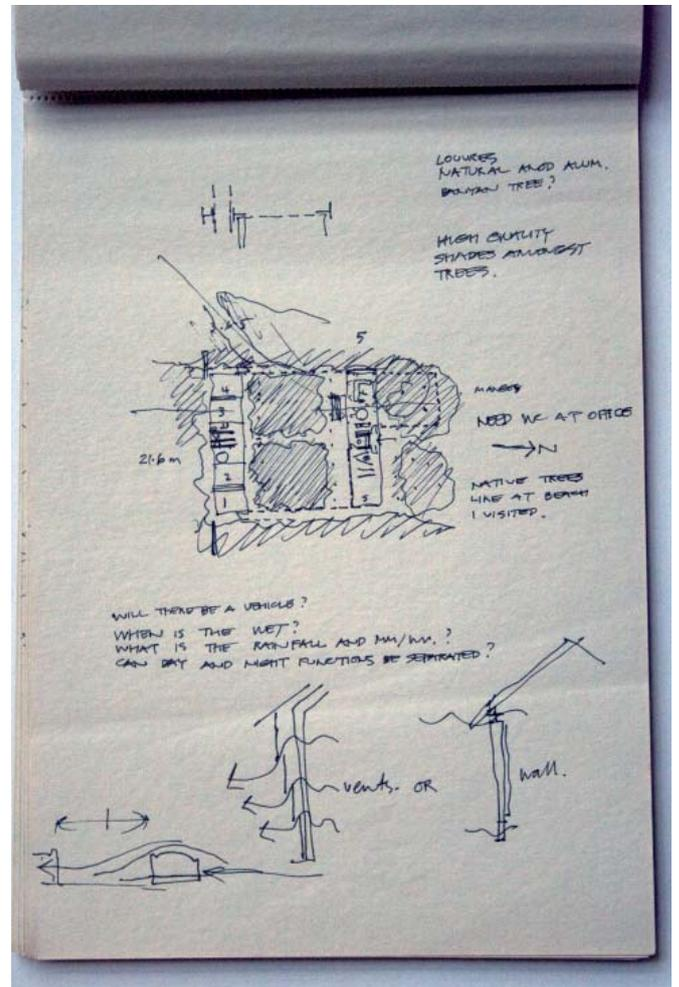 LOUVRES
NATURAL ANOD ALUM.
BANYAN TREE?
HIGH QUALITY
SHADES AMONGST
TREES.
5
4
3
2
1
5
21.6 m
NEED WC AT OFFICE
N
NATIVE TREES
LINE AT BEACH
I VISITED.
WILL THERE BE A VEHICLE?
WHEN IS THE WET?
WHAT IS THE RAINFALL AND MM/HR.?
CAN DAY AND NIGHT FUNCTIONS BE SEPARATED?
vents. OR
wall.